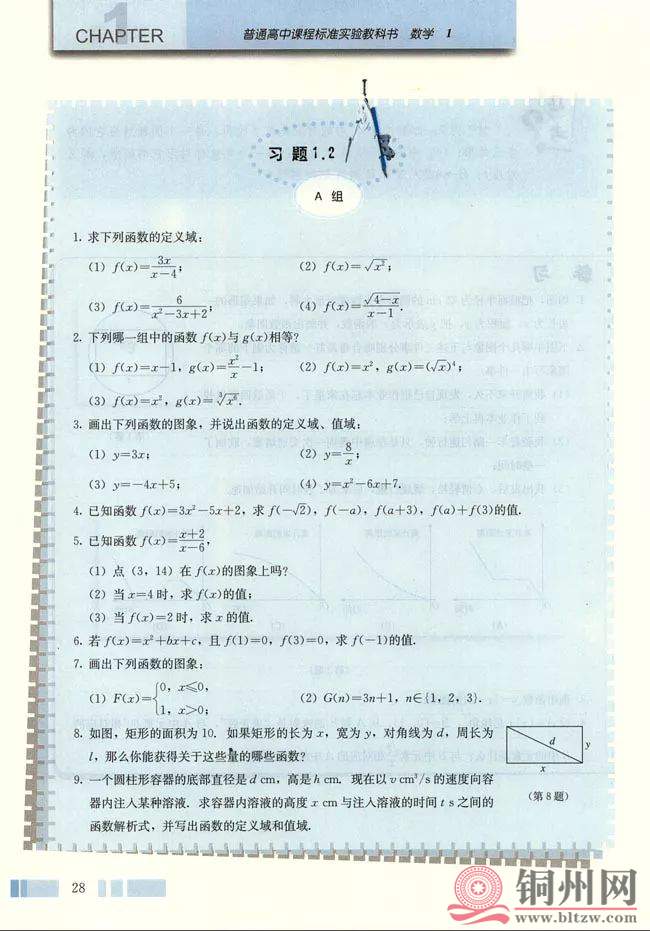 1
CHAPTER
普通高中课程标准实验教科书 数学 1
习题1.2
A 组
1. 求下列函数的定义域:
(1) f(x)=3x/(x-4); (2) f(x)=√x²;
(3) f(x)=6/(x²-3x+2); (4) f(x)=√(4-x)/(x-1).
2. 下列哪一组中的函数 f(x)与 g(x)相等?
(1) f(x)=x-1, g(x)=x²/x-1; (2) f(x)=x², g(x)=(√x)⁴;
(3) f(x)=x², g(x)=∛x⁶.
3. 画出下列函数的图象, 并说出函数的定义域、值域:
(1) y=3x; (2) y=8/x;
(3) y=-4x+5; (4) y=x²-6x+7.
4. 已知函数 f(x)=3x²-5x+2, 求 f(-√2), f(-a), f(a+3), f(a)+f(3)的值.
5. 已知函数 f(x)=(x+2)/(x-6),
(1) 点 (3, 14) 在 f(x)的图象上吗?
(2) 当 x=4 时, 求 f(x)的值;
(3) 当 f(x)=2 时, 求 x 的值.
6. 若 f(x)=x²+bx+c, 且 f(1)=0, f(3)=0, 求 f(-1)的值.
7. 画出下列函数的图象:
(1) F(x)={0, x≤0, 1, x>0; (2) G(n)=3n+1, n∈{1, 2, 3}.
8. 如图, 矩形的面积为 10. 如果矩形的长为 x, 宽为 y, 对角线为 d, 周长为
l, 那么你能获得关于这些量的哪些函数?
d
y
x
(第 8 题)
9. 一个圆柱形容器的底部直径是 d cm, 高是 h cm. 现在以 v cm³/s 的速度向容
器内注入某种溶液. 求容器内溶液的高度 x cm 与注入溶液的时间 t s 之间的
函数解析式, 并写出函数的定义域和值域.
28
铜州网
www.bltzw.com